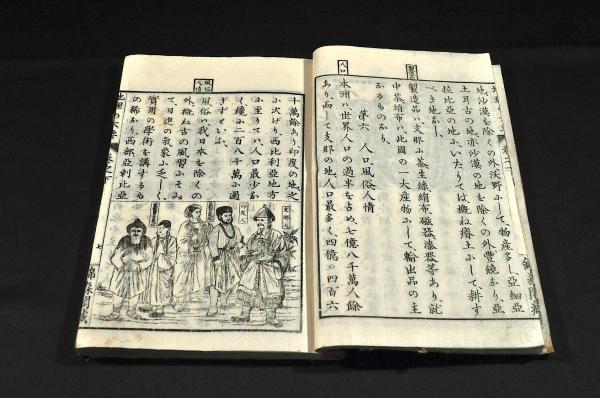 製造品
地沙漠を除くの外沃野ふして物産多し亞細亞
土耳古の地亦沙漠の地を除くの外豊饒なり亞
拉比亞の地ふいたりてハ概ね瘠土ふして耕す
べき地なし
製造品ハ支那ふ茶生絲絹布磁器漆器等あり就
中茶絹布ハ此の一大産物ふして輸出品の主
なるものなり
第六 人口風俗人情
人口
本洲ハ世界人口の過半を占め七億八千萬人餘
あり而して支那の地人口最多く四億〇四百六
十萬餘あり印度の地之
ふ次げり西比利亞地方
ふ至りてハ人口最少な
く纔ふ二百八十萬ふ過
ぎずといふ
風俗人情
風俗ハ我日本を除くの
外概ね古の風習ふそみ
て日進の氣象ふ乏しく
實用の學術を講ずるも
の稀なり西部亞剌比亞
支那人
印度人
七